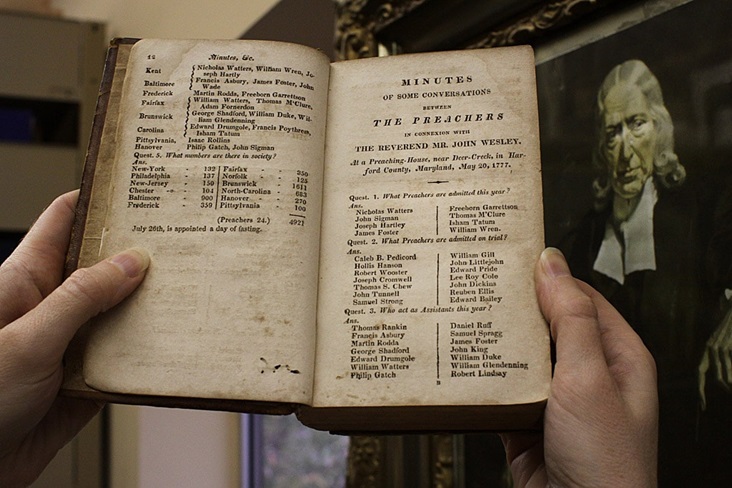 12 Minutes, &c.
Kent { Nicholas Watters, William Wren, Jo-
seph Hartly
Baltimore { Francis Asbury, James Foster, John
Wade
Frederick Martin Rodda, Freeborn Garrettson
Fairfax { William Watters, Thomas M'Clure,
Adam Fornerdon
Brunswick { George Shadford, William Duke, Wil-
liam Glendenning
Carolina { Edward Drumgole, Francis Poythress,
Isham Tatum
Pittsylvania, Isaac Rollins
Hanover Philip Gatch, John Sigman
Quest. 5. What numbers are there in society?
Ans.
New-York - 132 | Fairfax - 350
Philadelphia - 137 | Norfolk - 125
New-Jersey - 150 | Brunswick - 1611
Chester - - 104 | North-Carolina - 683
Baltimore - 900 | Hanover - 270
Frederick - 559 | Pittsylvania - 100
(Preachers 24.) 4921
July 26th, is appointed a day of fasting.
MINUTES
OF SOME CONVERSATIONS
BETWEEN
THE PREACHERS
IN CONNEXION WITH
THE REVEREND MR. JOHN WESLEY.
At a Preaching-House, near Deer-Creek, in Har-
ford County, Maryland, May 20, 1777.
Quest. 1. What Preachers are admitted this year?
Ans.
Nicholas Watters | Freeborn Garrettson
John Sigman | Thomas M'Clure
Joseph Hartley | Isham Tatum
James Foster | William Wren.
Quest. 2. What Preachers are admitted on trial?
Ans.
Caleb B. Pedicord | William Gill
Hollis Hanson | John Littlejohn
Robert Wooster | Edward Pride
Joseph Cromwell | Lee Roy Cole
Thomas S. Chew | John Dickins
John Tunnell | Reuben Ellis
Samuel Strong | Edward Bailey
Quest. 3. Who act as Assistants this year?
Ans.
Thomas Rankin | Daniel Ruff
Francis Asbury | Samuel Spragg
Martin Rodda | James Foster
George Shadford | John King
Edward Drumgole | William Duke
William Watters | William Glendenning
Philip Gatch | Robert Lindsay
B